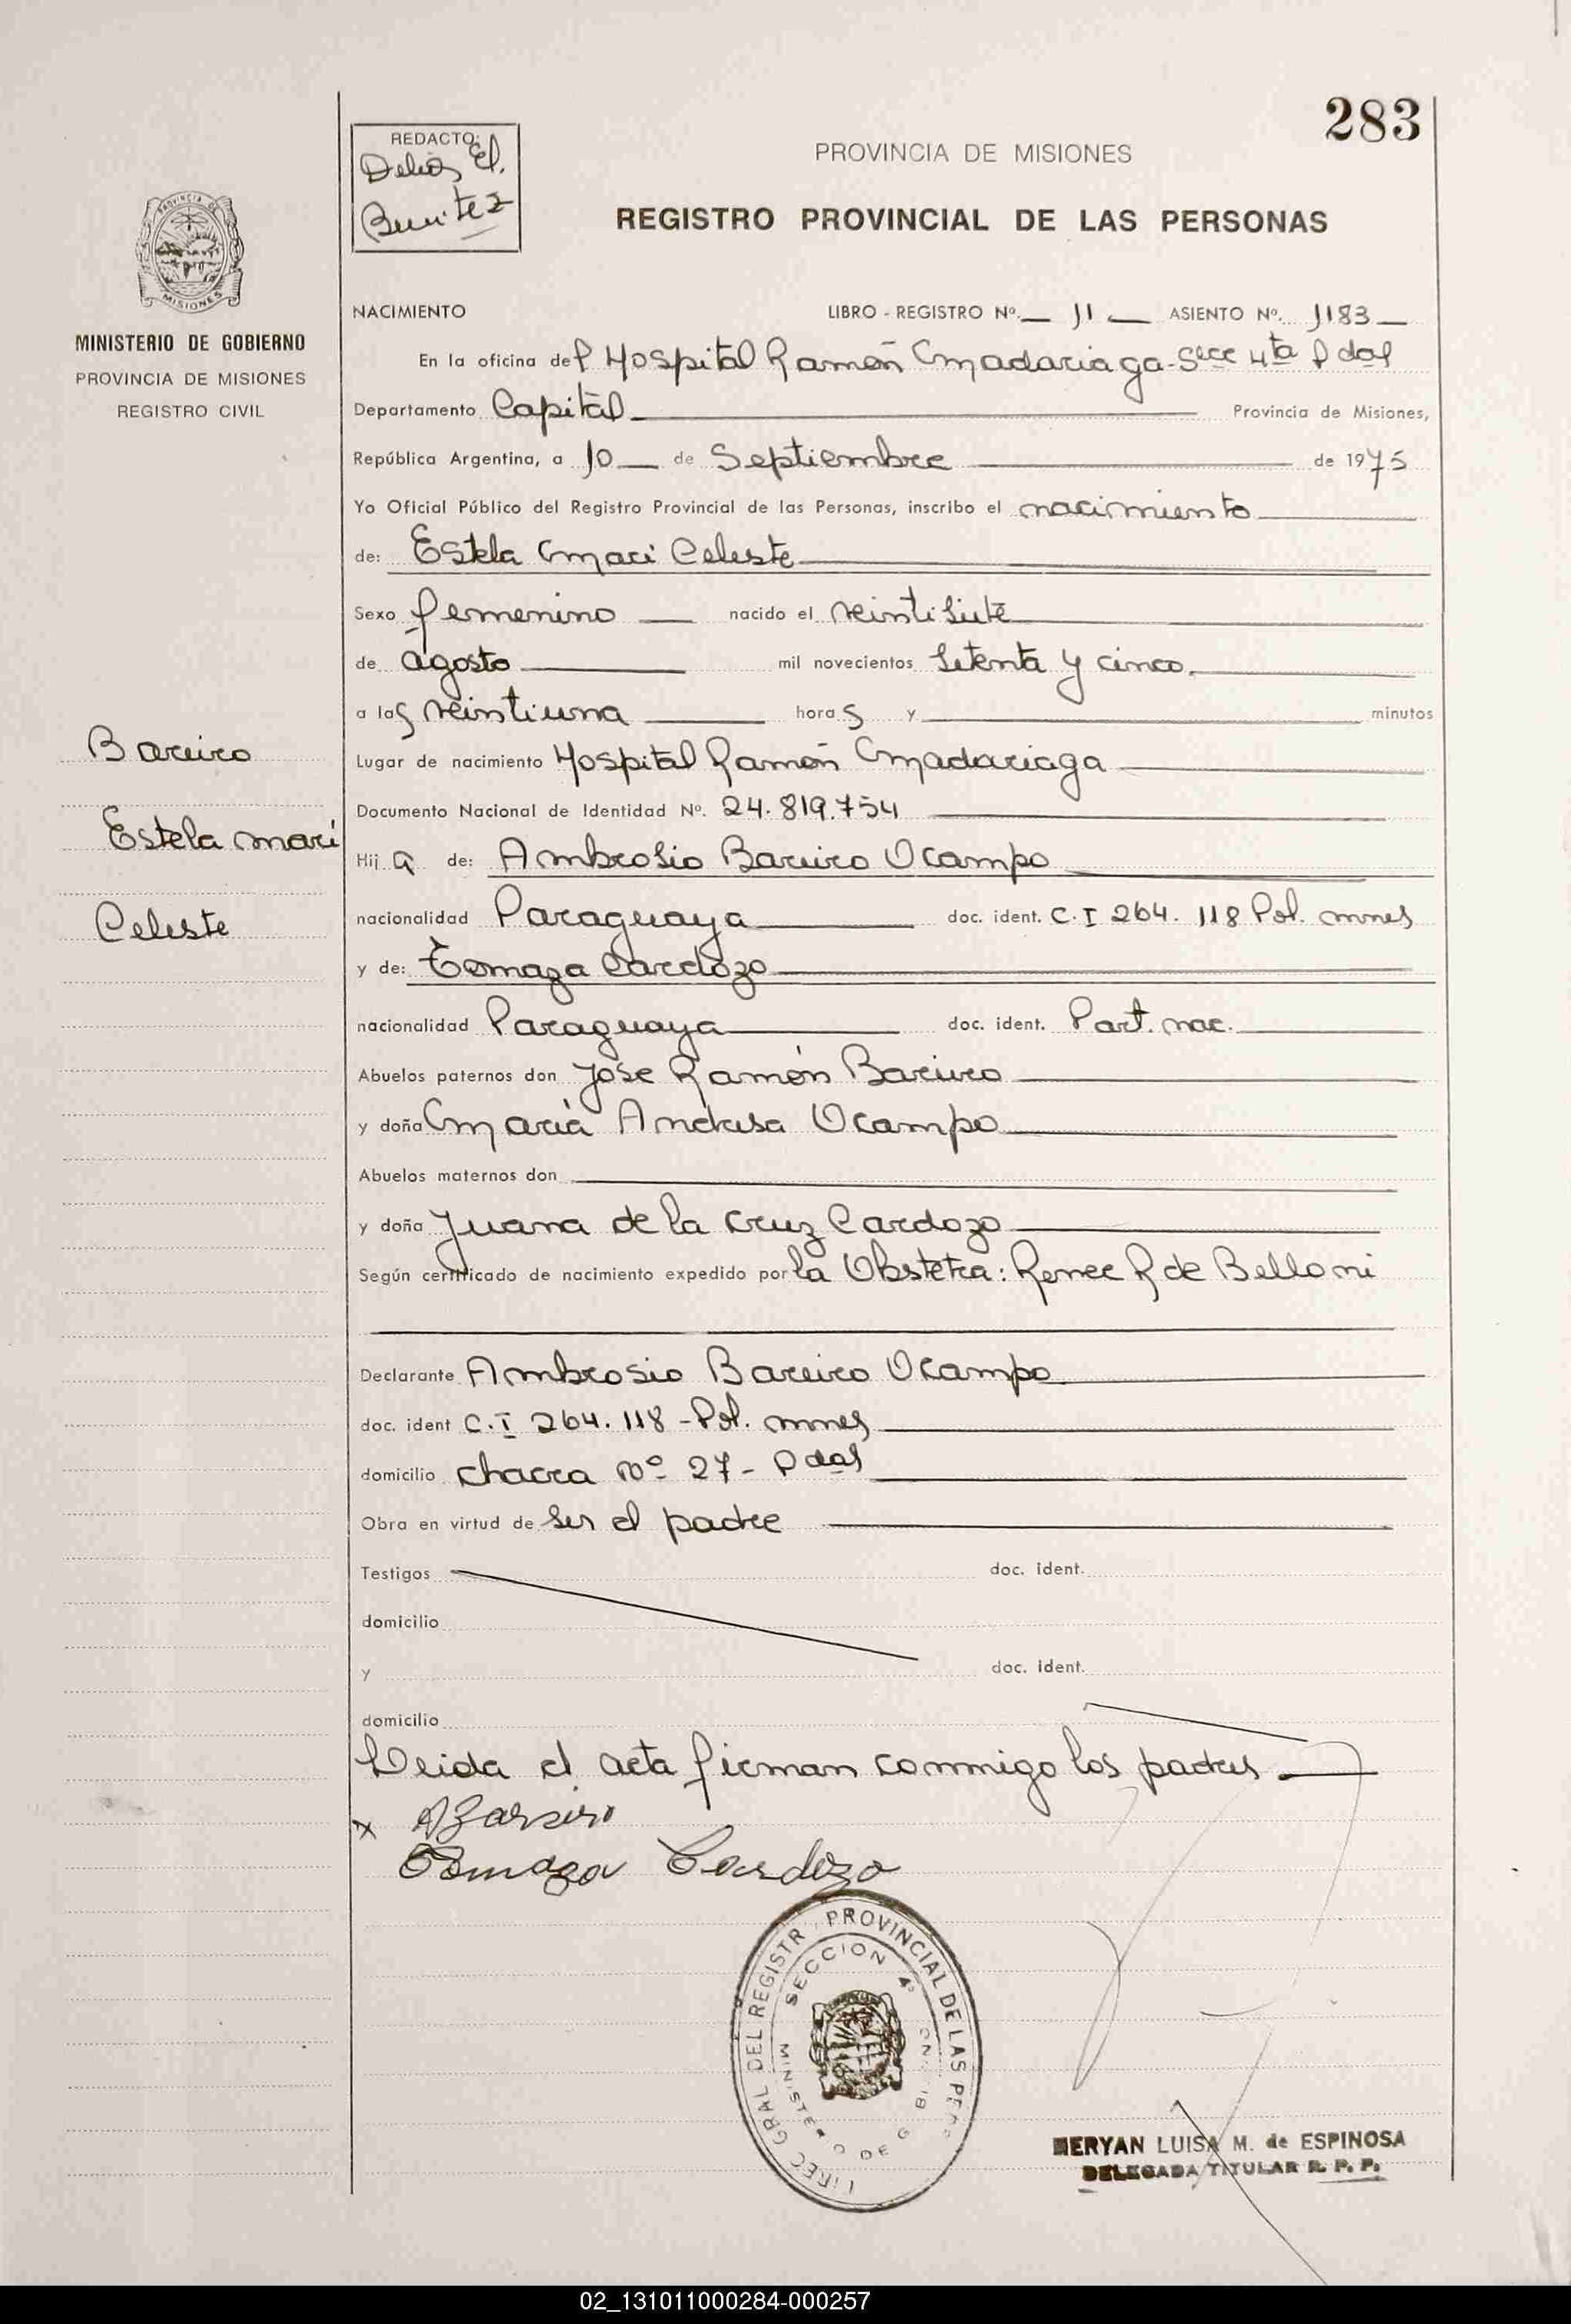 283
REDACTO:
Delia El.
Benitez
PROVINCIA DE MISIONES
REGISTRO PROVINCIAL DE LAS PERSONAS
PROVINCIA DE
MISIONES
MINISTERIO DE GOBIERNO
PROVINCIA DE MISIONES
REGISTRO CIVIL
NACIMIENTO LIBRO - REGISTRO Nº. 11 ASIENTO Nº. 1183
En la oficina del Hospital Ramón Madariaga - Secc 4ta Pdas
Departamento Capital Provincia de Misiones,
República Argentina, a 10 de Septiembre de 1975
Yo Oficial Público del Registro Provincial de las Personas, inscribo el nacimiento
de: Estela Mari Celeste
Sexo femenino nacido el veintisiete
de agosto mil novecientos setenta y cinco.
a las veintiuna horas y minutos
Lugar de nacimiento Hospital Ramón Madariaga
Documento Nacional de Identidad Nº. 24.819.754
Hija de: Ambrosio Bareiro Ocampo
nacionalidad Paraguaya doc. ident. C.I 264.118 Pol. Mnes
y de: Tomaza Cardozo
nacionalidad Paraguaya doc. ident. Part. nac.
Abuelos paternos don José Ramón Bareiro
y doña María Andresa Ocampo
Abuelos maternos don
y doña Juana de la Cruz Cardozo
Según certificado de nacimiento expedido por la Obstetra: Renee R de Belloni
Declarante Ambrosio Bareiro Ocampo
doc. ident C.I 264.118 - Pol. Mnes
domicilio chacra Nº 27 - Pdas
Obra en virtud de ser el padre
Testigos doc. ident.
domicilio
y doc. ident.
domicilio
Leida el acta firman conmigo los padres
x ABareiro
Tomaza Cardozo
Bareiro
Estela Mari
Celeste
DIREC GRAL DEL REGISTR PROVINCIAL DE LAS PER
SECCION 4º
MINISTERIO DE GOBIERNO
MERYAN LUISA M. de ESPINOSA
DELEGADA TITULAR R. P. P.
02_131011000284-000257